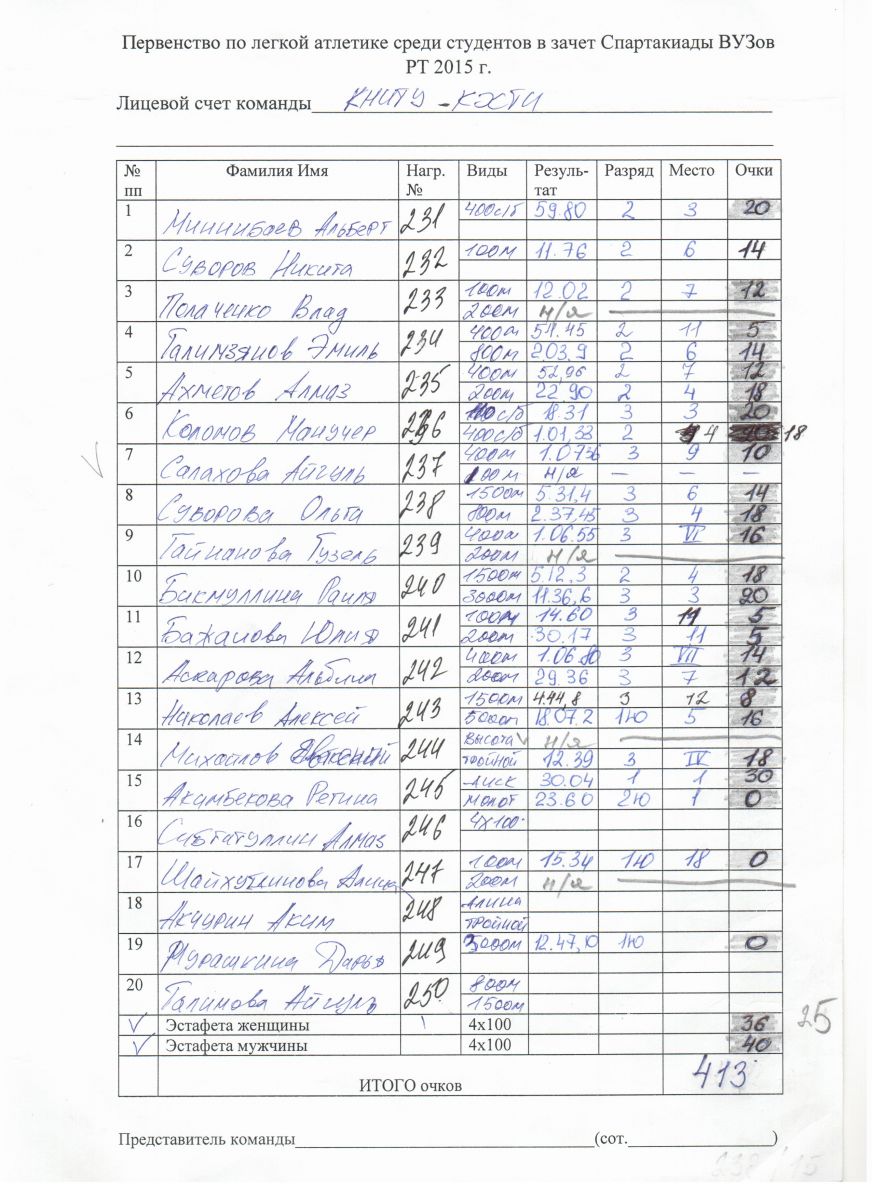 Первенство по легкой атлетике среди студентов в зачет Спартакиады ВУЗов
РТ 2015 г.
Лицевой счет команды КНИТУ-КХТИ
№ пп Фамилия Имя Нагр. № Виды Резуль-тат Разряд Место Очки
1 Миннибаев Альберт 231 400с/б 59.80 2 3 20
2 Суворов Никита 232 100м 11.76 2 6 14
3 Полаченко Влад 233 100м 12.02 2 7 12
200м н/я
4 Галимзянов Эмиль 234 400м 54.45 2 11 5
800м 2.03,9 2 6 14
5 Ахметов Алмаз 235 400м 52,96 2 7 12
200м 22.90 2 4 18
6 Коломов Манучер 236 110с/б 18.31 3 3 20
400с/б 1.01,33 2 4 18
7 Салахова Айгуль 237 400м 3 9 10
100м н/я — — —
8 Суворова Ольга 238 1500м 5.31,4 3 6 14
800м 2.37,45 3 4 18
9 Гайнанова Гузель 239 400м 1.06.55 3 VI 16
200м н/я
10 Бикмуллина Раиля 240 1500м 5.12,3 2 4 18
3000м 11.36,6 3 3 20
11 Бажанова Юлия 241 100м 14.60 3 11 5
200м 30.17 3 11 5
12 Аскарова Альбина 242 400м 1.06.80 3 VII 14
200м 29.36 3 7 12
13 Николаев Алексей 243 1500м 4.44,8 3 12 8
5000м 18.07,2 1ю 5 16
14 Михайлов Евгений 244 Высота н/я
тройной 12.39 3 IV 18
15 Акимбекова Регина 245 диск 30.04 1 1 30
молот 23.60 2ю 1 0
16 Сибгатуллин Алмаз 246 4х100
17 Шайхутдинова Алина 247 100м 15.34 1ю 18 0
200м н/я
18 Акчурин Аким 248 длина
тройной
19 Мурашкина Дарья 249 3000м 12.47,0 1ю 0
20 Галимова Айгуль 250 800м
1500м
Эстафета женщины 4х100 36 25
Эстафета мужчины 4х100 40
ИТОГО очков 413
Представитель команды (сот. )